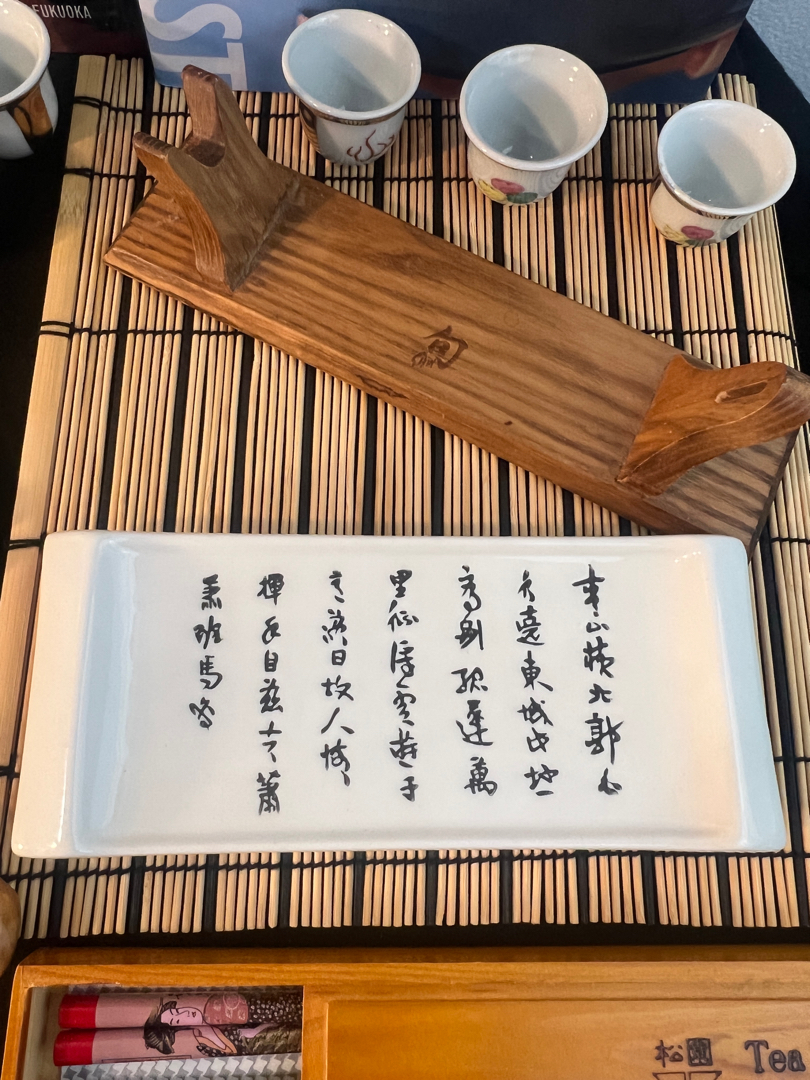 FUKUOKA
ST
旬
青山横北郭白
水遶東城此地一
為別孤蓬萬
里征浮雲遊子
意落日故人情
揮手自茲去蕭
蕭班馬鳴
松園 Tea